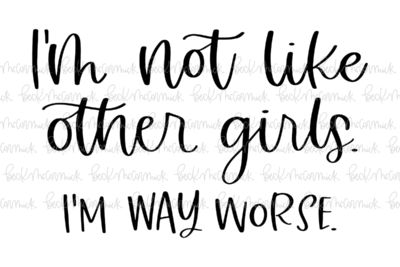 I'm not like
other girls.
I'M WAY WORSE.